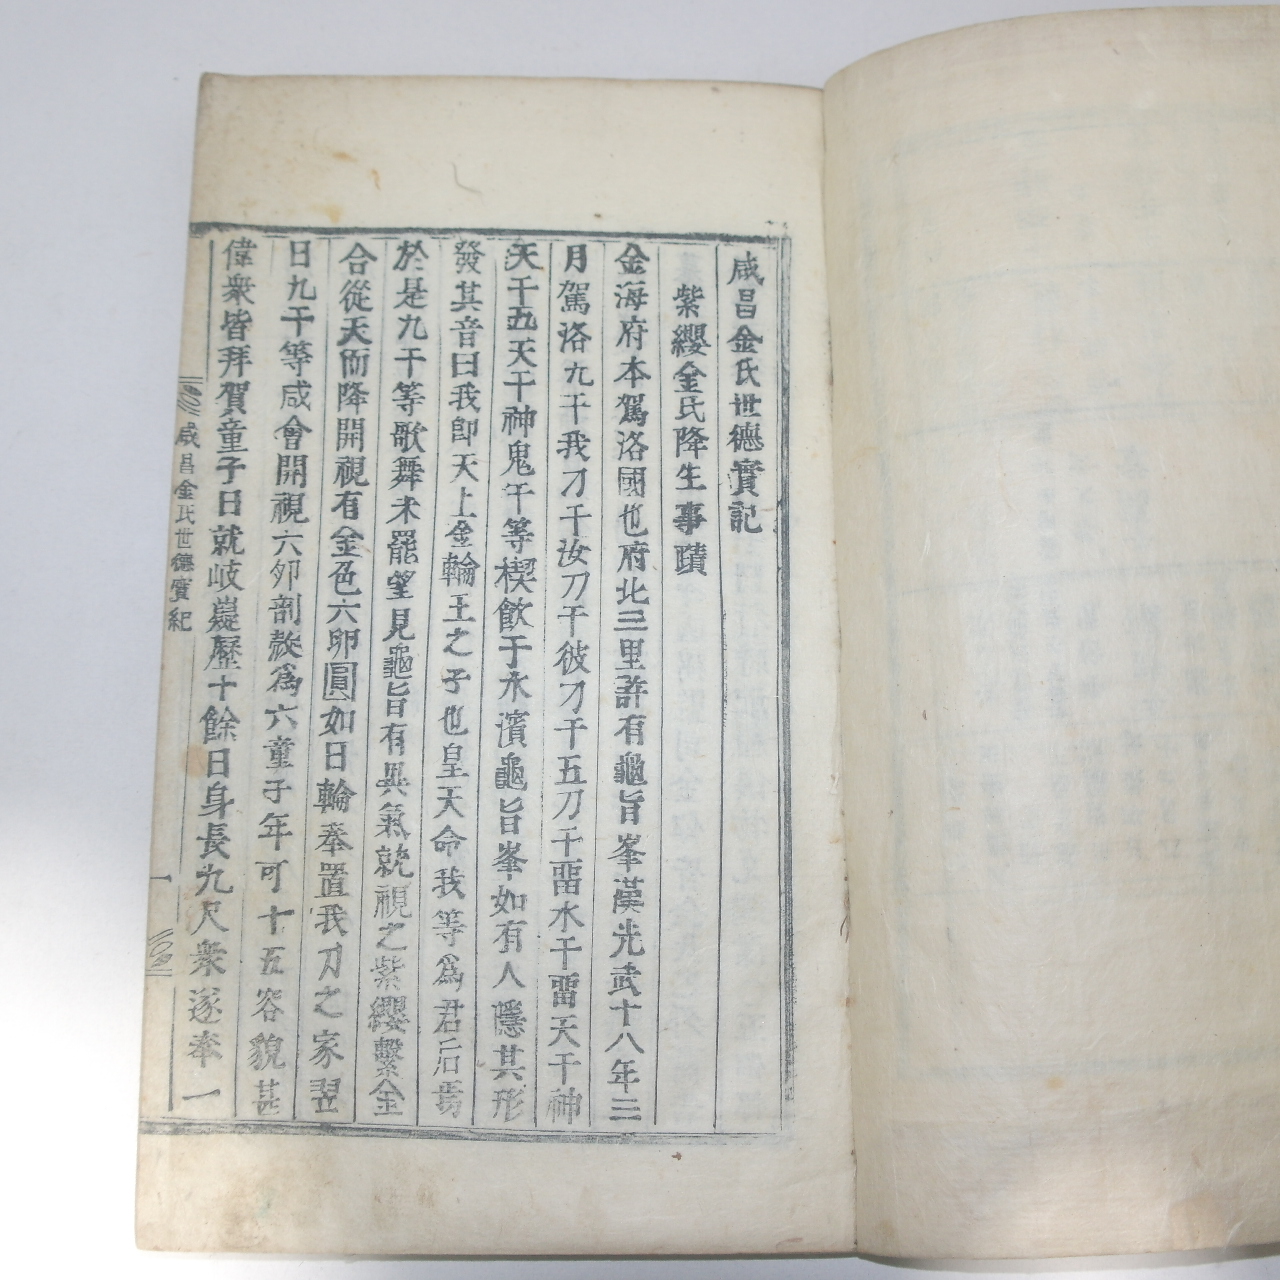 咸昌金氏世德寶記
紫纓金氏降生事蹟
金海府本駕洛國也府北三里許有龜旨峯漢光武十八年三
月駕洛九干我刀干汝刀干彼刀干五刀干畱水干畱天干神
天干五天干神鬼干等禊飮于水濱龜旨峯如有人隱其形
發其音曰我卽天上金輪王之子也皇天命我等爲君后焉
於是九干等歌舞未罷望見龜旨有異氣就視之紫纓繫金
合從天而降開視有金色六卵圓如日輪奉置我刀之家翌
日九干等咸會開視六卵剖殼爲六童子年可十五容貌甚
偉衆皆拜賀童子日就岐嶷歷十餘日身長九尺衆遂奉一
咸昌金氏世德寶紀
一